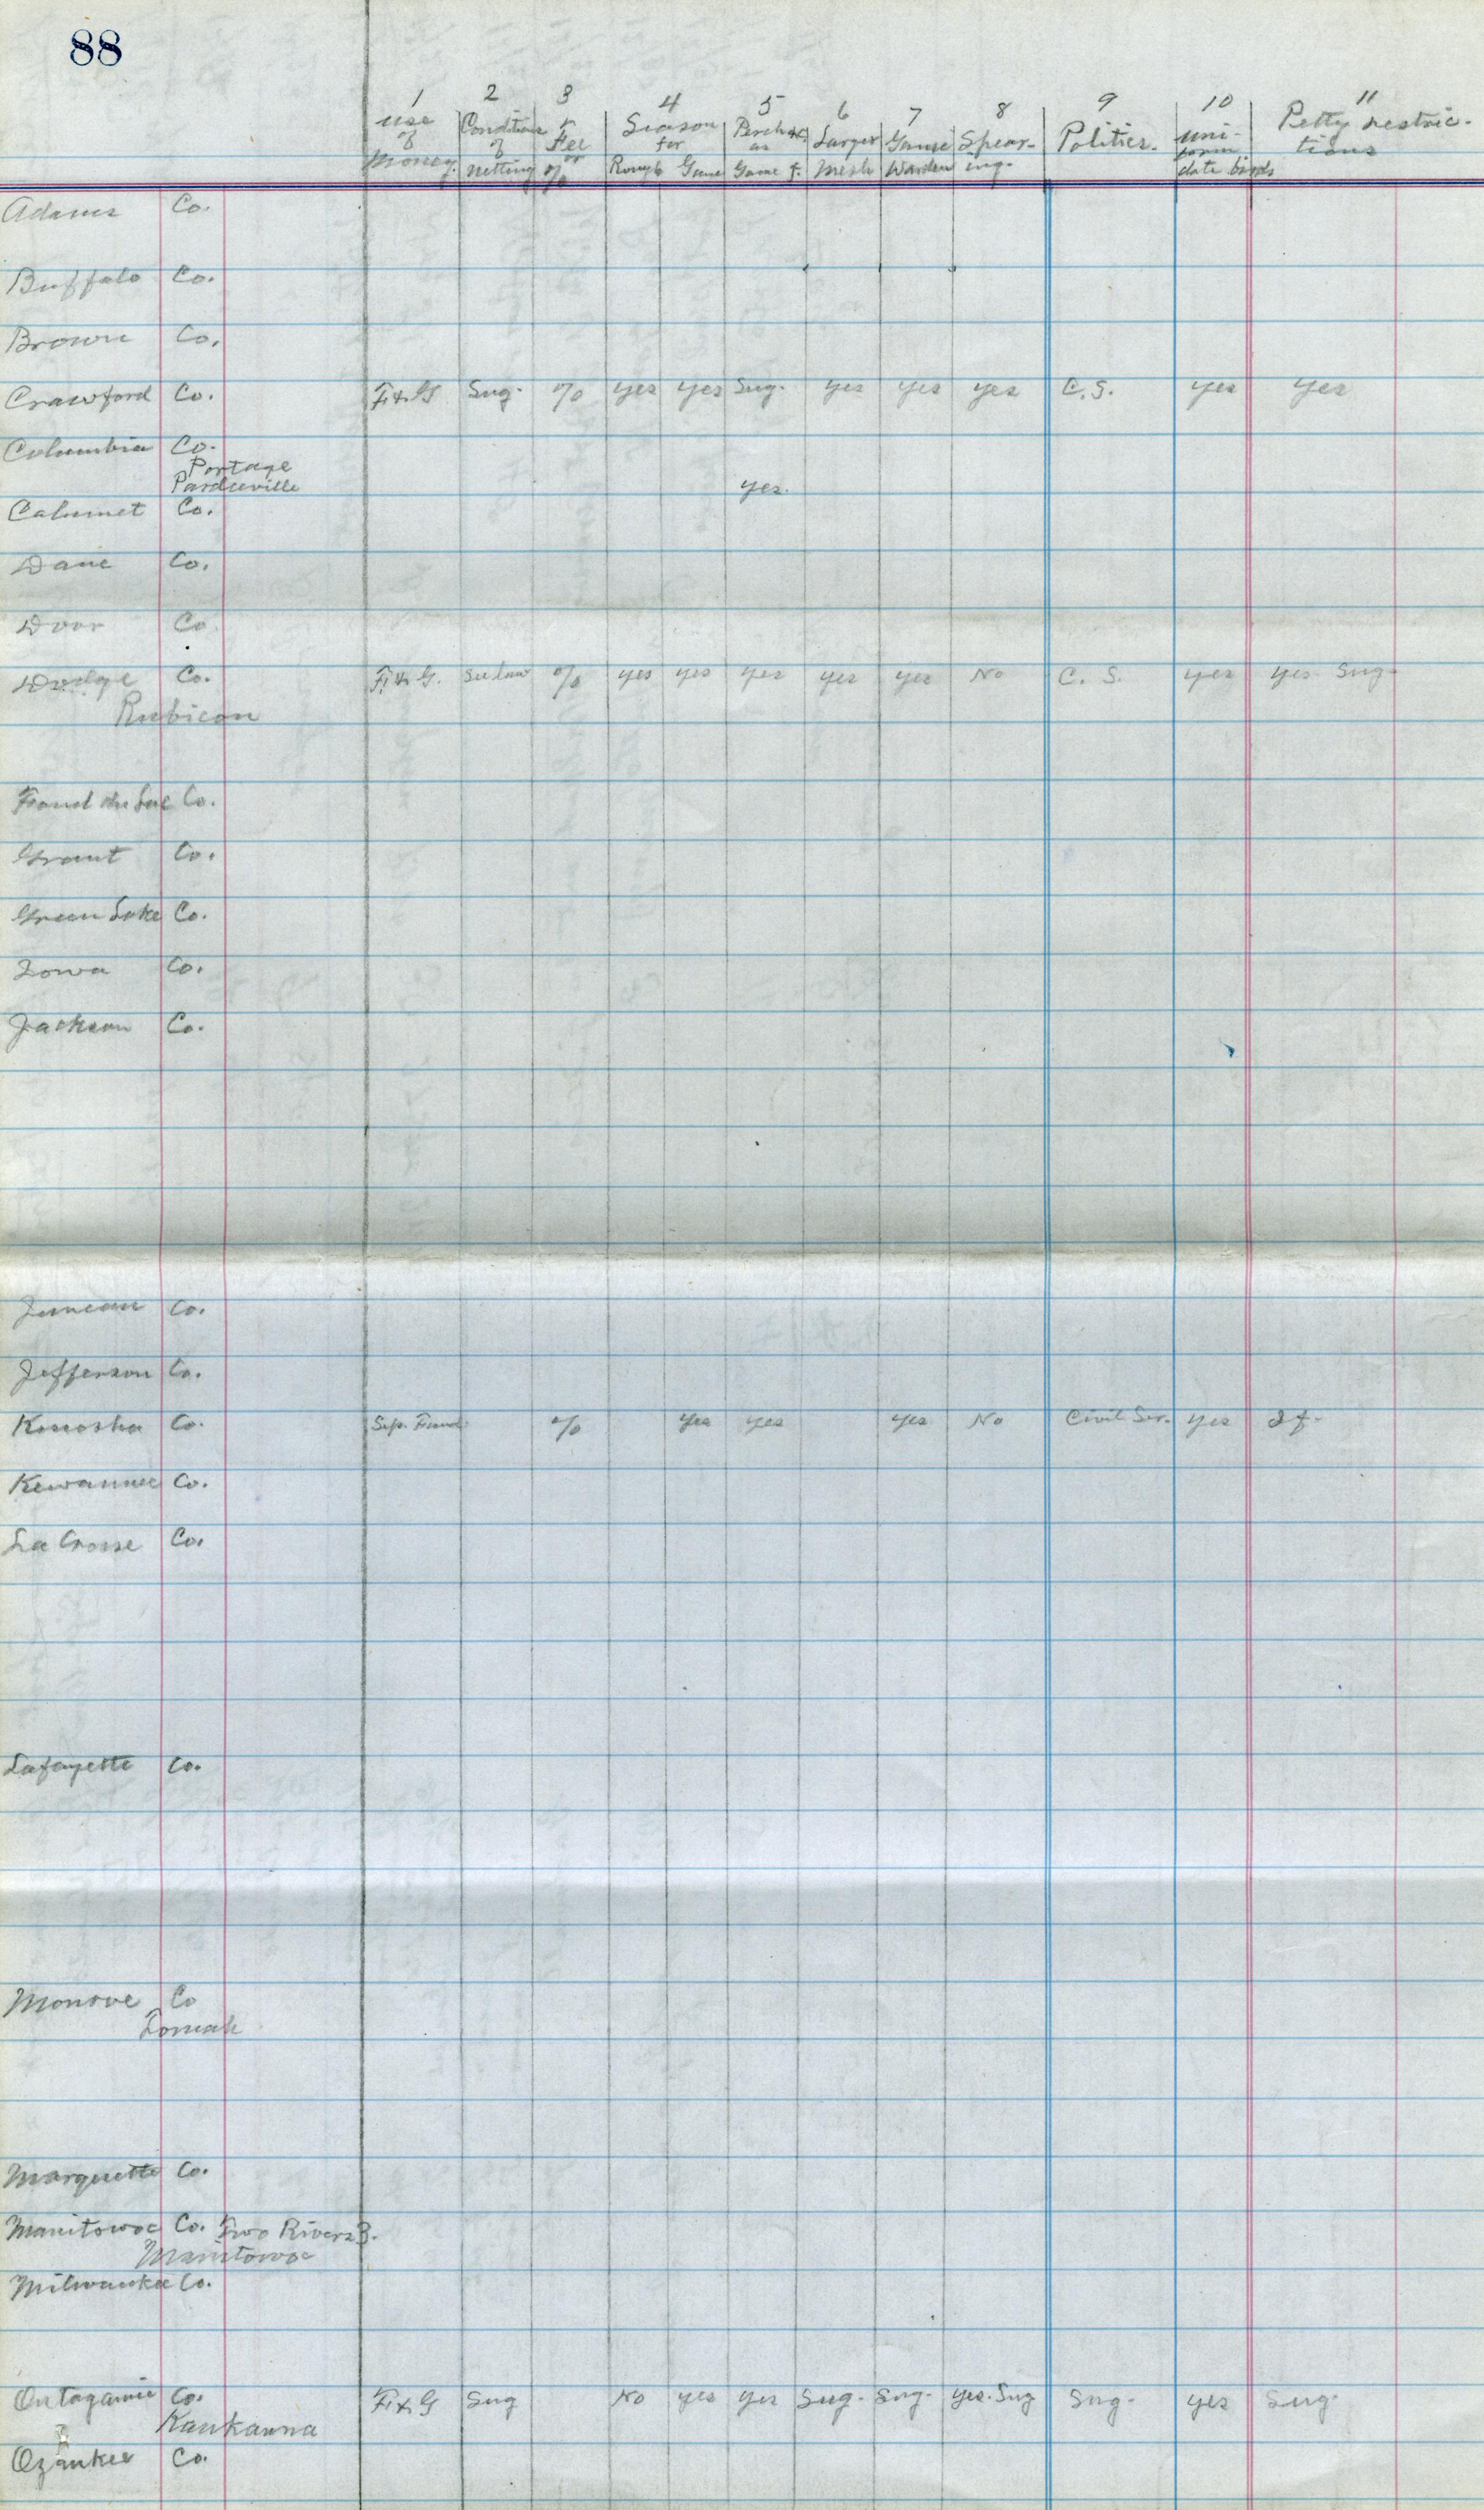 88
1 2 3 4 5 6 7 8 9 10 11
use of Money.
Conditions of netting
Fee or %
Season for Rough Game
Perch &c as Game f.
Larger Mesh
Game Warden
Spear-ing.
Politics.
uni-form date birds
Petty restric-tions
Adams Co.
Buffalo Co.
Brown Co.
Crawford Co. F. & G Sug. % yes yes Sug. yes yes yes C.S. yes yes
Columbia Co.
Portage
Pardeeville yes.
Calumet Co.
Dane Co.
Door Co
Dodge Co. F. & G. See law % yes yes yes yes yes No C. S. yes yes Sug.
Rubicon
Fond du Lac Co.
Grant Co.
Green Lake Co.
Iowa Co.
Jackson Co.
Juneau Co.
Jefferson Co.
Kenosha Co. Sep. Fund % yes yes yes No Civil Ser. yes
Kewaunee Co.
La Crosse Co.
Lafayette Co.
Monroe Co
Tomah
Marquette Co.
Manitowoc Co. Two Rivers
Manitowoc
Milwaukee Co.
Outagamie Co. F. & G Sug No yes yes Sug. Sug. yes. Sug Sug. yes Sug.
Kaukanna
Ozaukee Co.